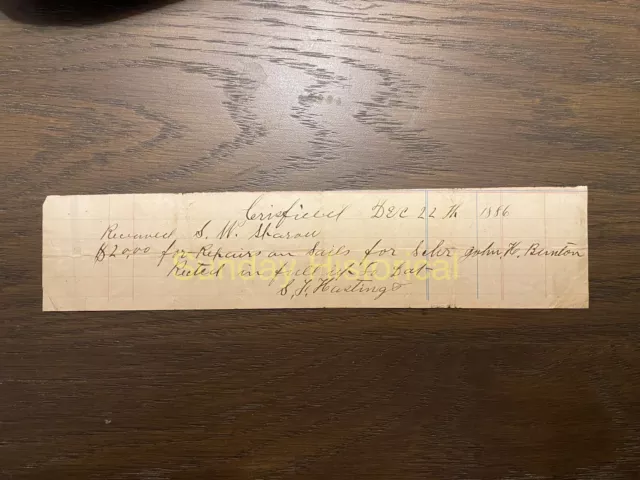 Crisfield Dec 22 th 1886
Received S. W. Sharott
$20,00 for Repairs on Sails for Schr John H. Bunton
in full up to Dat
S. F. Hastings
Sunday Historical